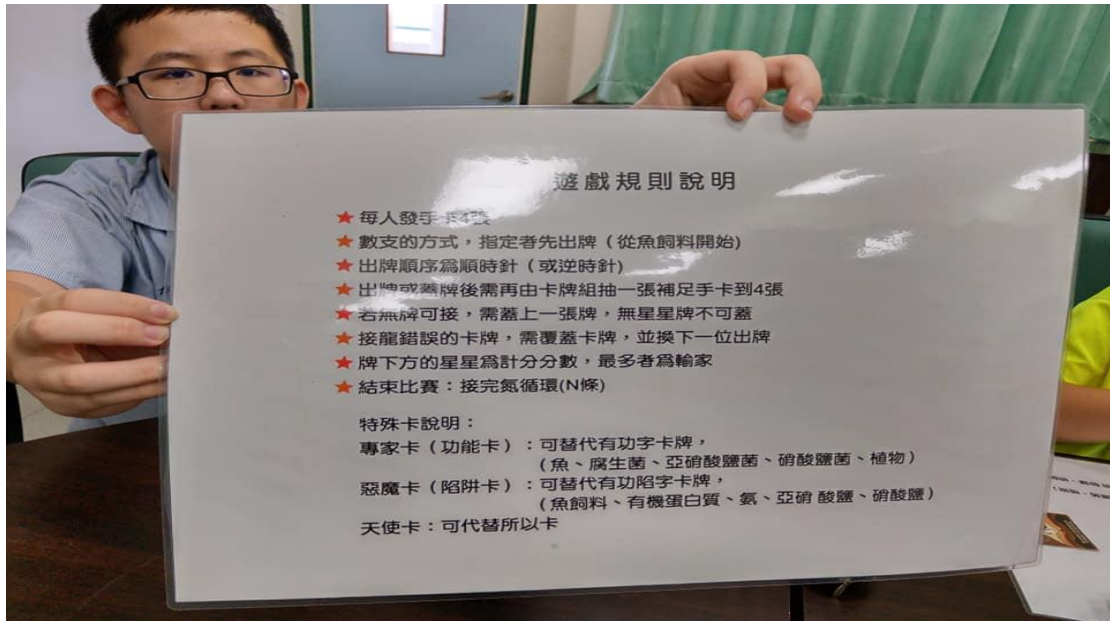 遊戲規則說明
★每人發手卡4張
★數支的方式，指定者先出牌（從魚飼料開始)
★出牌順序為順時針（或逆時針)
★出牌或蓋牌後需再由卡牌組抽一張補足手卡到4張
★若無牌可接，需蓋上一張牌，無星星牌不可蓋
★接龍錯誤的卡牌，需覆蓋卡牌，並換下一位出牌
★牌下方的星星為計分分數，最多者為輸家
★結束比賽：接完氮循環(N條)
特殊卡說明：
專家卡（功能卡）：可替代有功字卡牌，
（魚、腐生菌、亞硝酸鹽菌、硝酸鹽菌、植物）
惡魔卡（陷阱卡）：可替代有功陷字卡牌，
（魚飼料、有機蛋白質、氨、亞硝 酸鹽、硝酸鹽）
天使卡：可代替所以卡